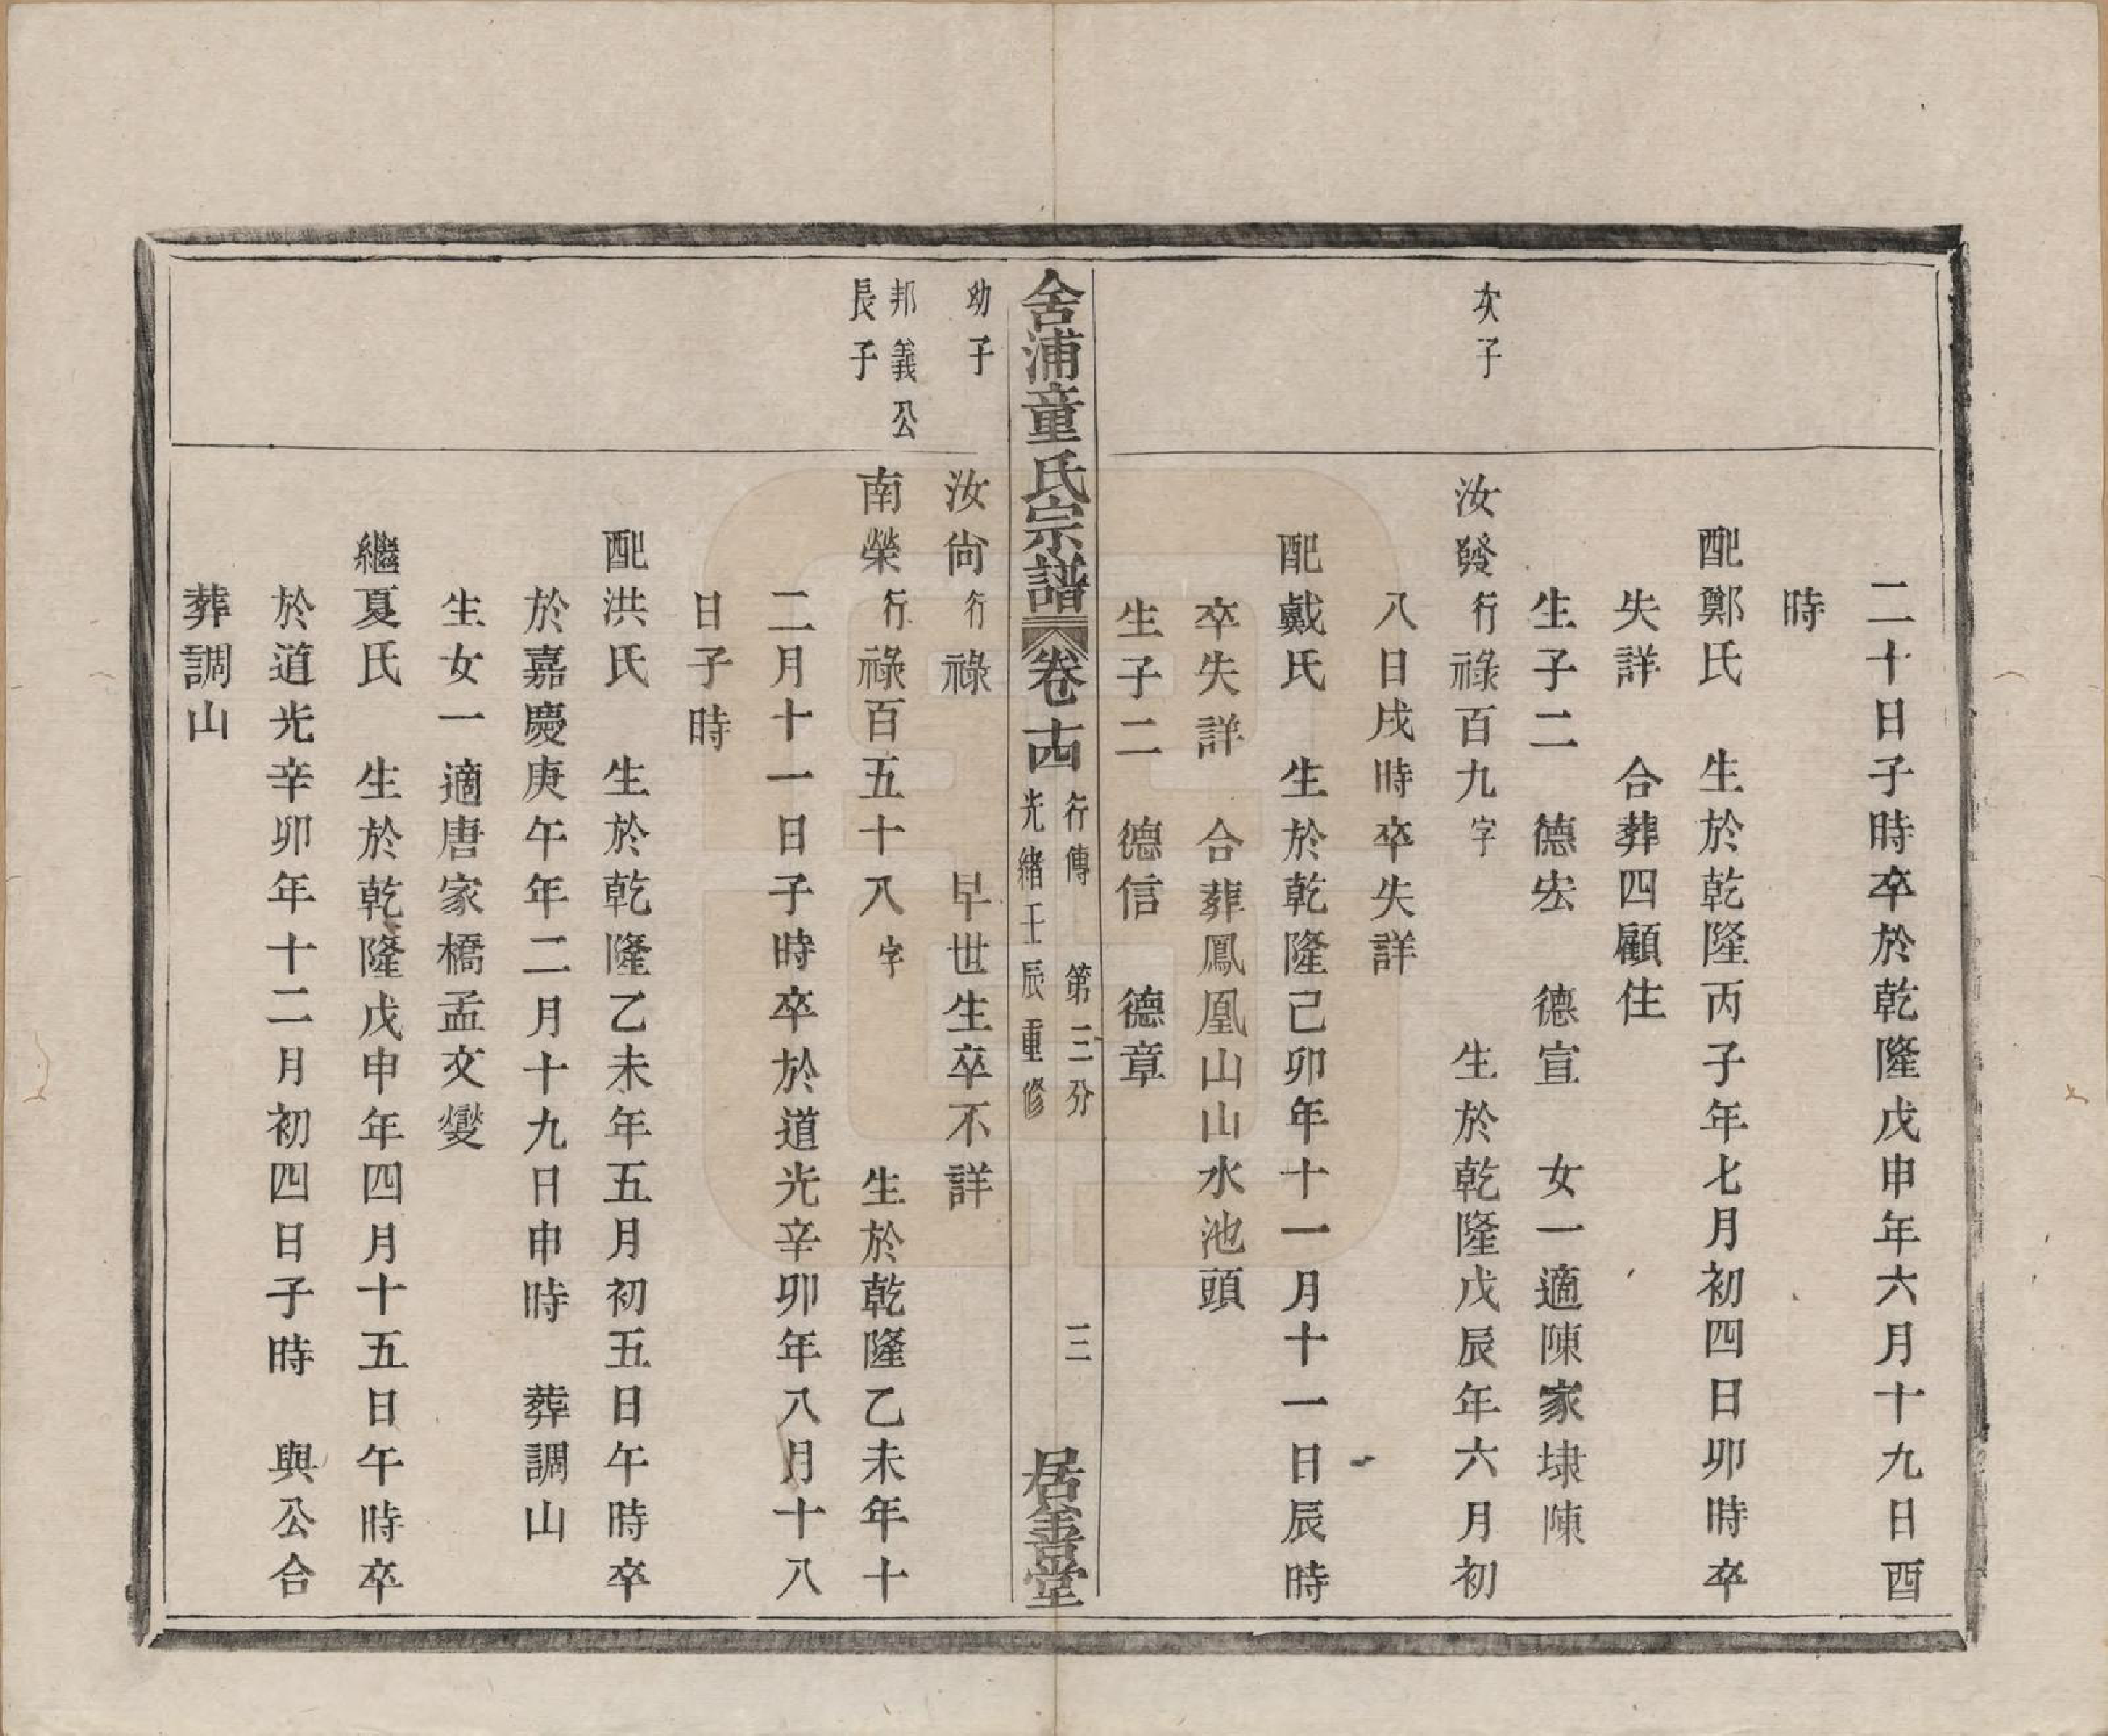 二十日子時卒於乾隆戊申年六月十九日酉
時
配鄭氏　生於乾隆丙子年七月初四日卯時卒
失詳　合葬四顧住
生子二　德宏　德宣　女一適陳家埭陳
次子
汝發行祿百九字　生於乾隆戊辰年六月初
八日戌時卒失詳
配戴氏　生於乾隆己卯年十一月十一日辰時
卒失詳　合葬鳳凰山山水池頭
生子二　德信　德章
舍浦童氏宗譜　卷十四　行傳　第三分　三
光緒壬辰重修　居善堂
幼子
汝尙行祿　早世生卒不詳
邦義公
長子
南榮行祿百五十八字　生於乾隆乙未年十
二月十一日子時卒於道光辛卯年八月十八
日子時
配洪氏　生於乾隆乙未年五月初五日午時卒
於嘉慶庚午年二月十九日申時　葬調山
生女一適唐家橋孟文燮
繼夏氏　生於乾隆戊申年四月十五日午時卒
於道光辛卯年十二月初四日子時　與公合
葬調山